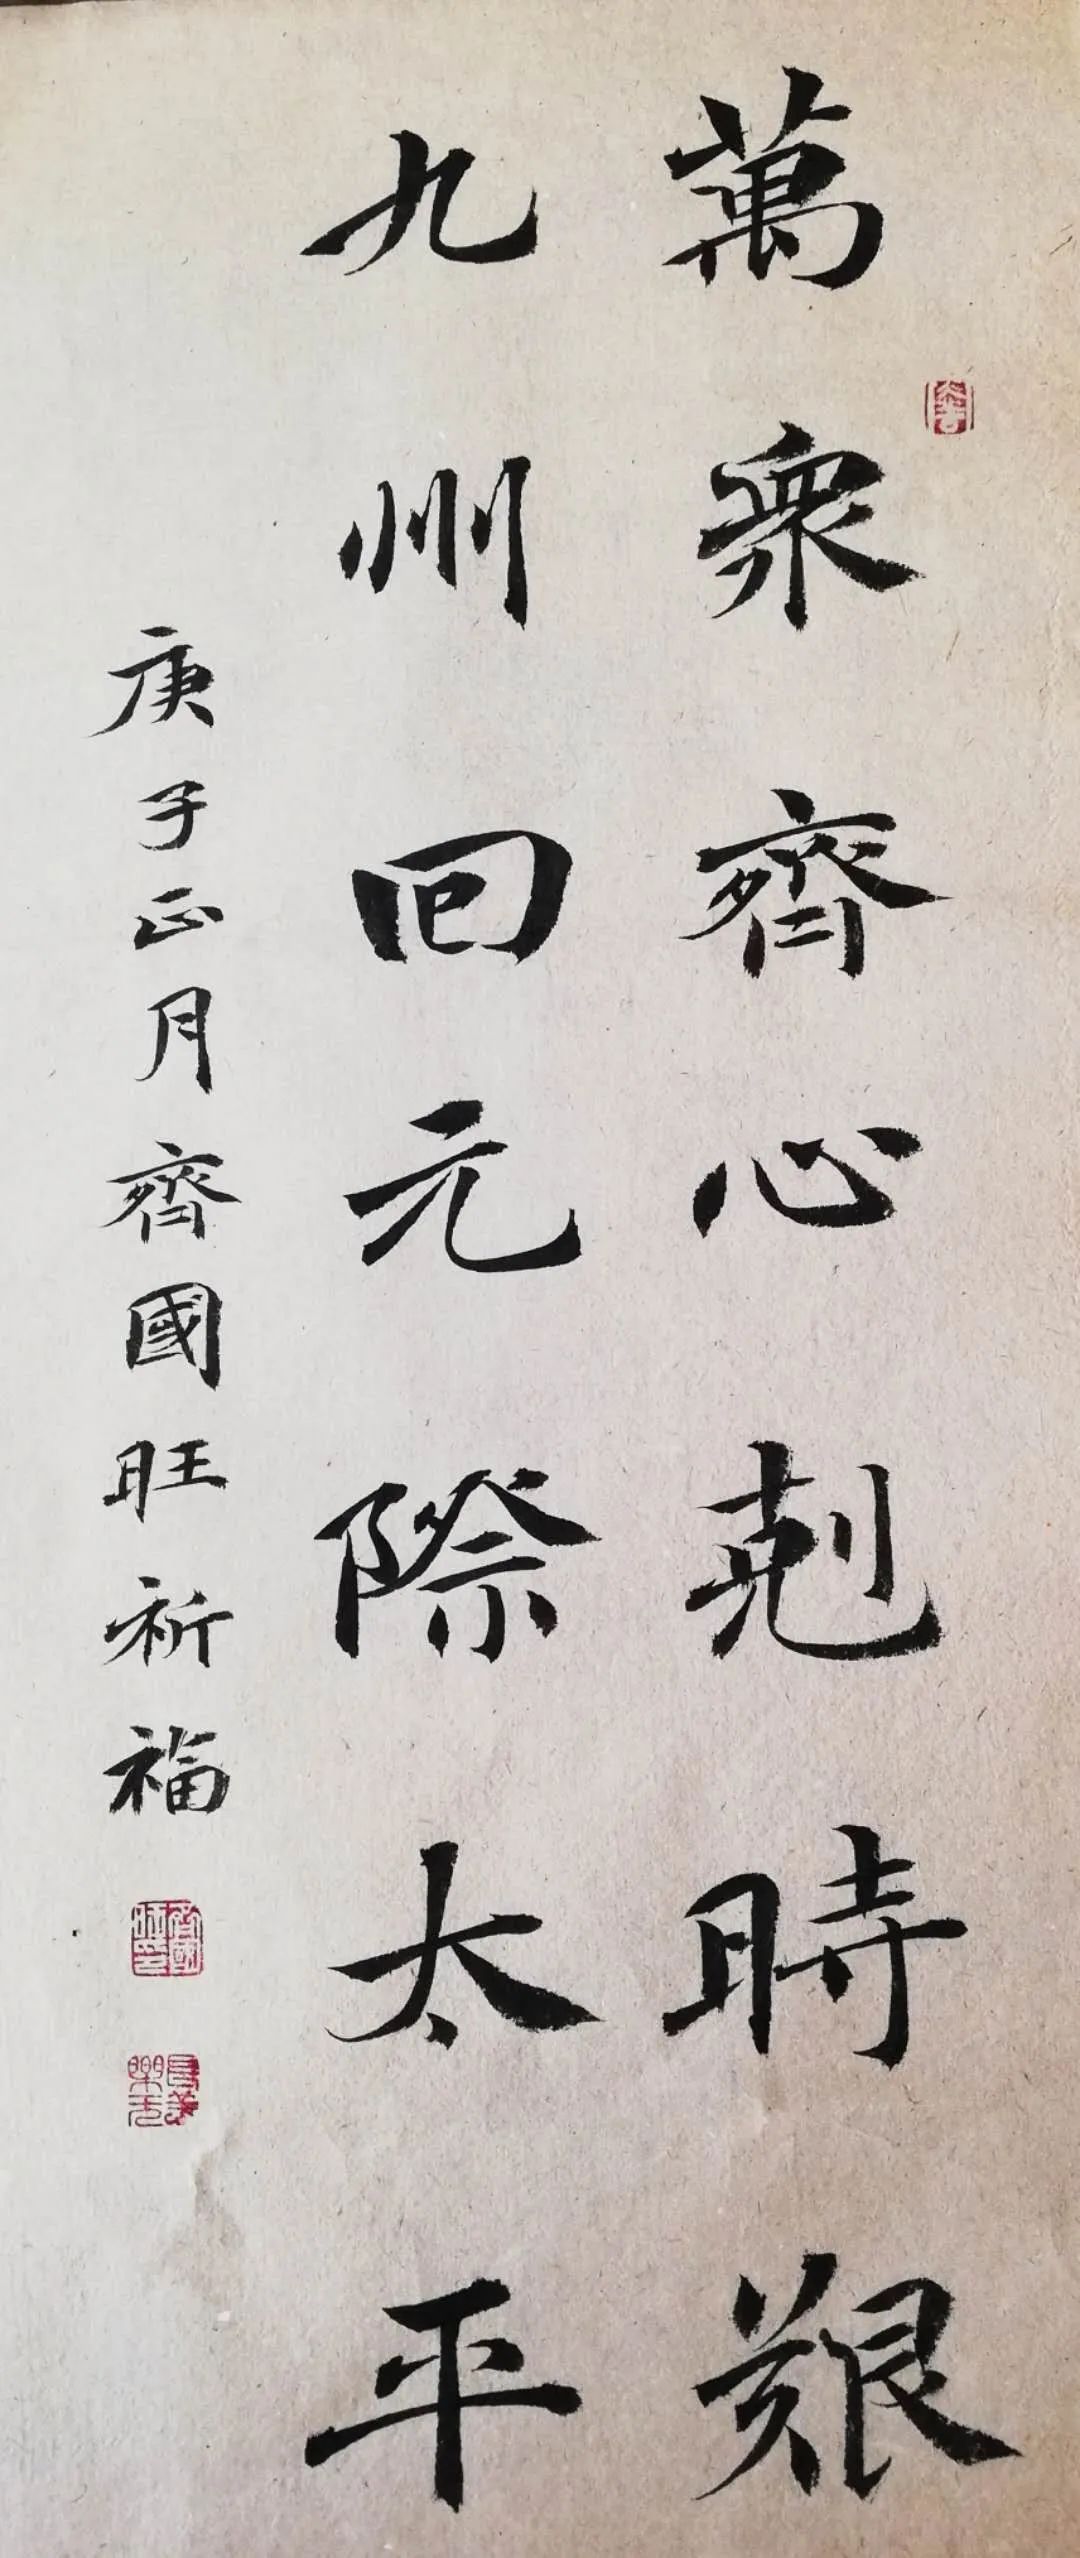 萬衆齊心剋時艱
九州回元際太平
庚子正月齊國旺祈福